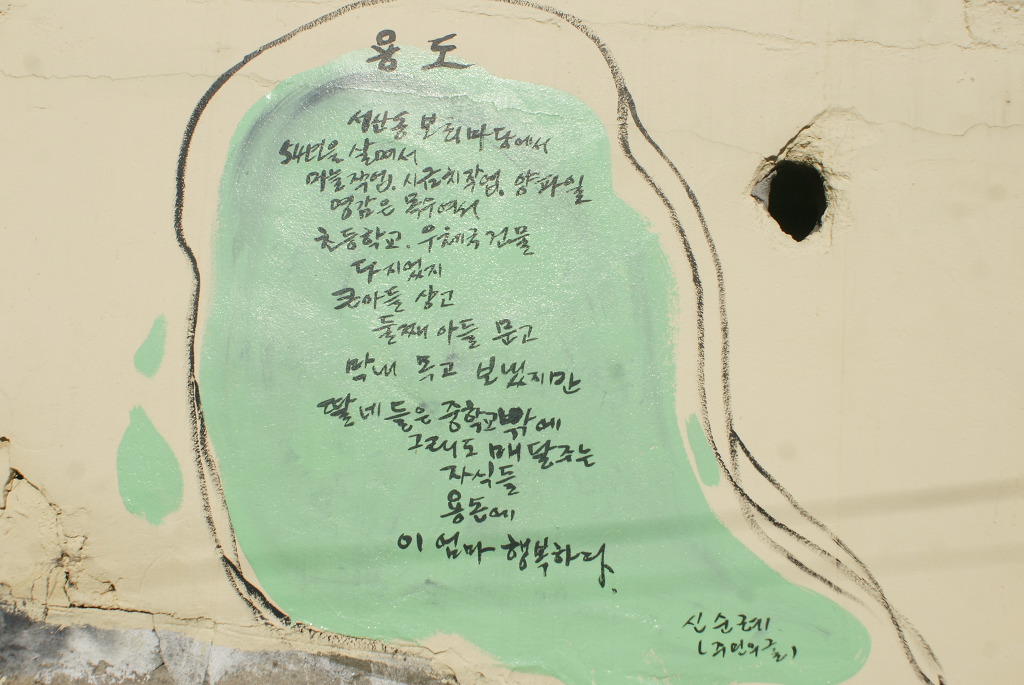 용 도
서산동 보리마당에서
54년을 살며서
마늘작업, 시금치작업, 양파일
영감은 목수여서
초등학교. 우체국 건물
다 지었지
큰아들 상고
둘째 아들 문고
막내 목고 보냈지만
딸네들은 중학교밖에
그래도 매달주는
자식들
용돈에
이 엄마 행복하다.
신순례
(주민의글)